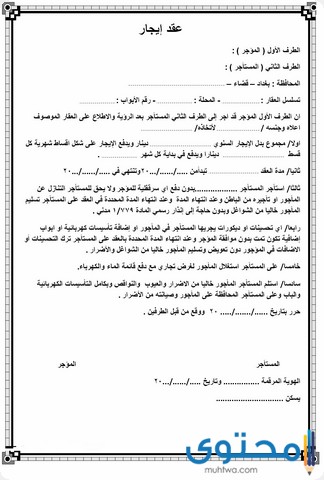 عقد إيجار
الطرف الأول ( المؤجر ) :
الطرف الثاني ( المستأجر ) :
المحافظة : بغداد – قضاء –
تسلسل العقار : - المحلة : - رقم الأبواب :
ان الطرف الأول المؤجر قد اجر إلى الطرف الثاني المستأجر بعد الرؤية والاطلاع على العقار الموصوف
اعلاه وجنسه / لأتخاذه/
اولا/ مجموع بدل الإيجار السنوي دينار ويدفع الإيجار على شكل اقساط شهرية كل
قسط دينارا ويدفع في بداية كل شهر
ثانيا/ مدة العقد تبدأ من ...../...../٢٠٠ وتنتهي في ...../...../٢٠٠
ثالثا/ استأجر المستأجر .................. بدون دفع اي سرقفلية للمؤجر ولا يحق للمستأجر التنازل عن
المأجور او تأجيره من الباطن وعند انتهاء المدة وعند انتهاء المدة المحددة في العقد على المستأجر تسليم
المأجور خاليا من الشواغل وبدون حاجة إلى إنذار رسمي المادة ١/٧٧٩ مدني .
رابعا/ اي تحسينات او ديكورات يجريها المستأجر في المأجور او إضافة تأسيسات كهربائية او ابواب
إضافية تكون تمت بدون موافقة المؤجر وعند انتهاء المدة المحددة بالعقد على المستأجر ترك التحسينات او
الاضافات في المؤجور دون تعويض وتسليم المأجور خاليا من الشواغل والأضرار .
خامسا/ على المستأجر استغلال المأجور لغرض تجاري مع دفع قائمة الماء والكهرباء.
سادسا/ استلم المستأجر المأجور خاليا من الاضرار والعيوب والنواقص وبكامل التأسيسات الكهربائية
والباب وعلى المستأجر المحافظة على المأجور وصيانته من الأضرار .
حرر بتاريخ ...../...../ ٢٠ ووقع من قبل الطرفين .
المستأجر المؤجر
الهوية المرقمة ................ وتاريخ ...../...../٢٠٠
يسكن ............................
محتوى
muhtwa.com